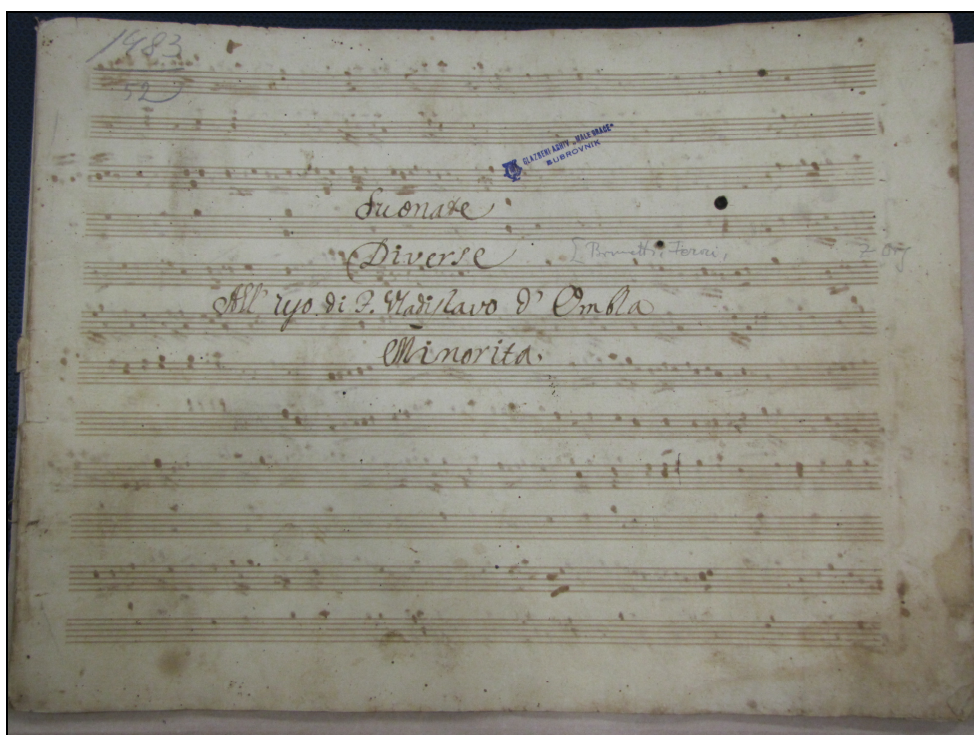 1483
52
GLAZBENI ARHIV „MALE BRAĆE"
DUBROVNIK
Suonate
Diverse
All' uso di F. Vladislavo d' Ombla
Minorita.